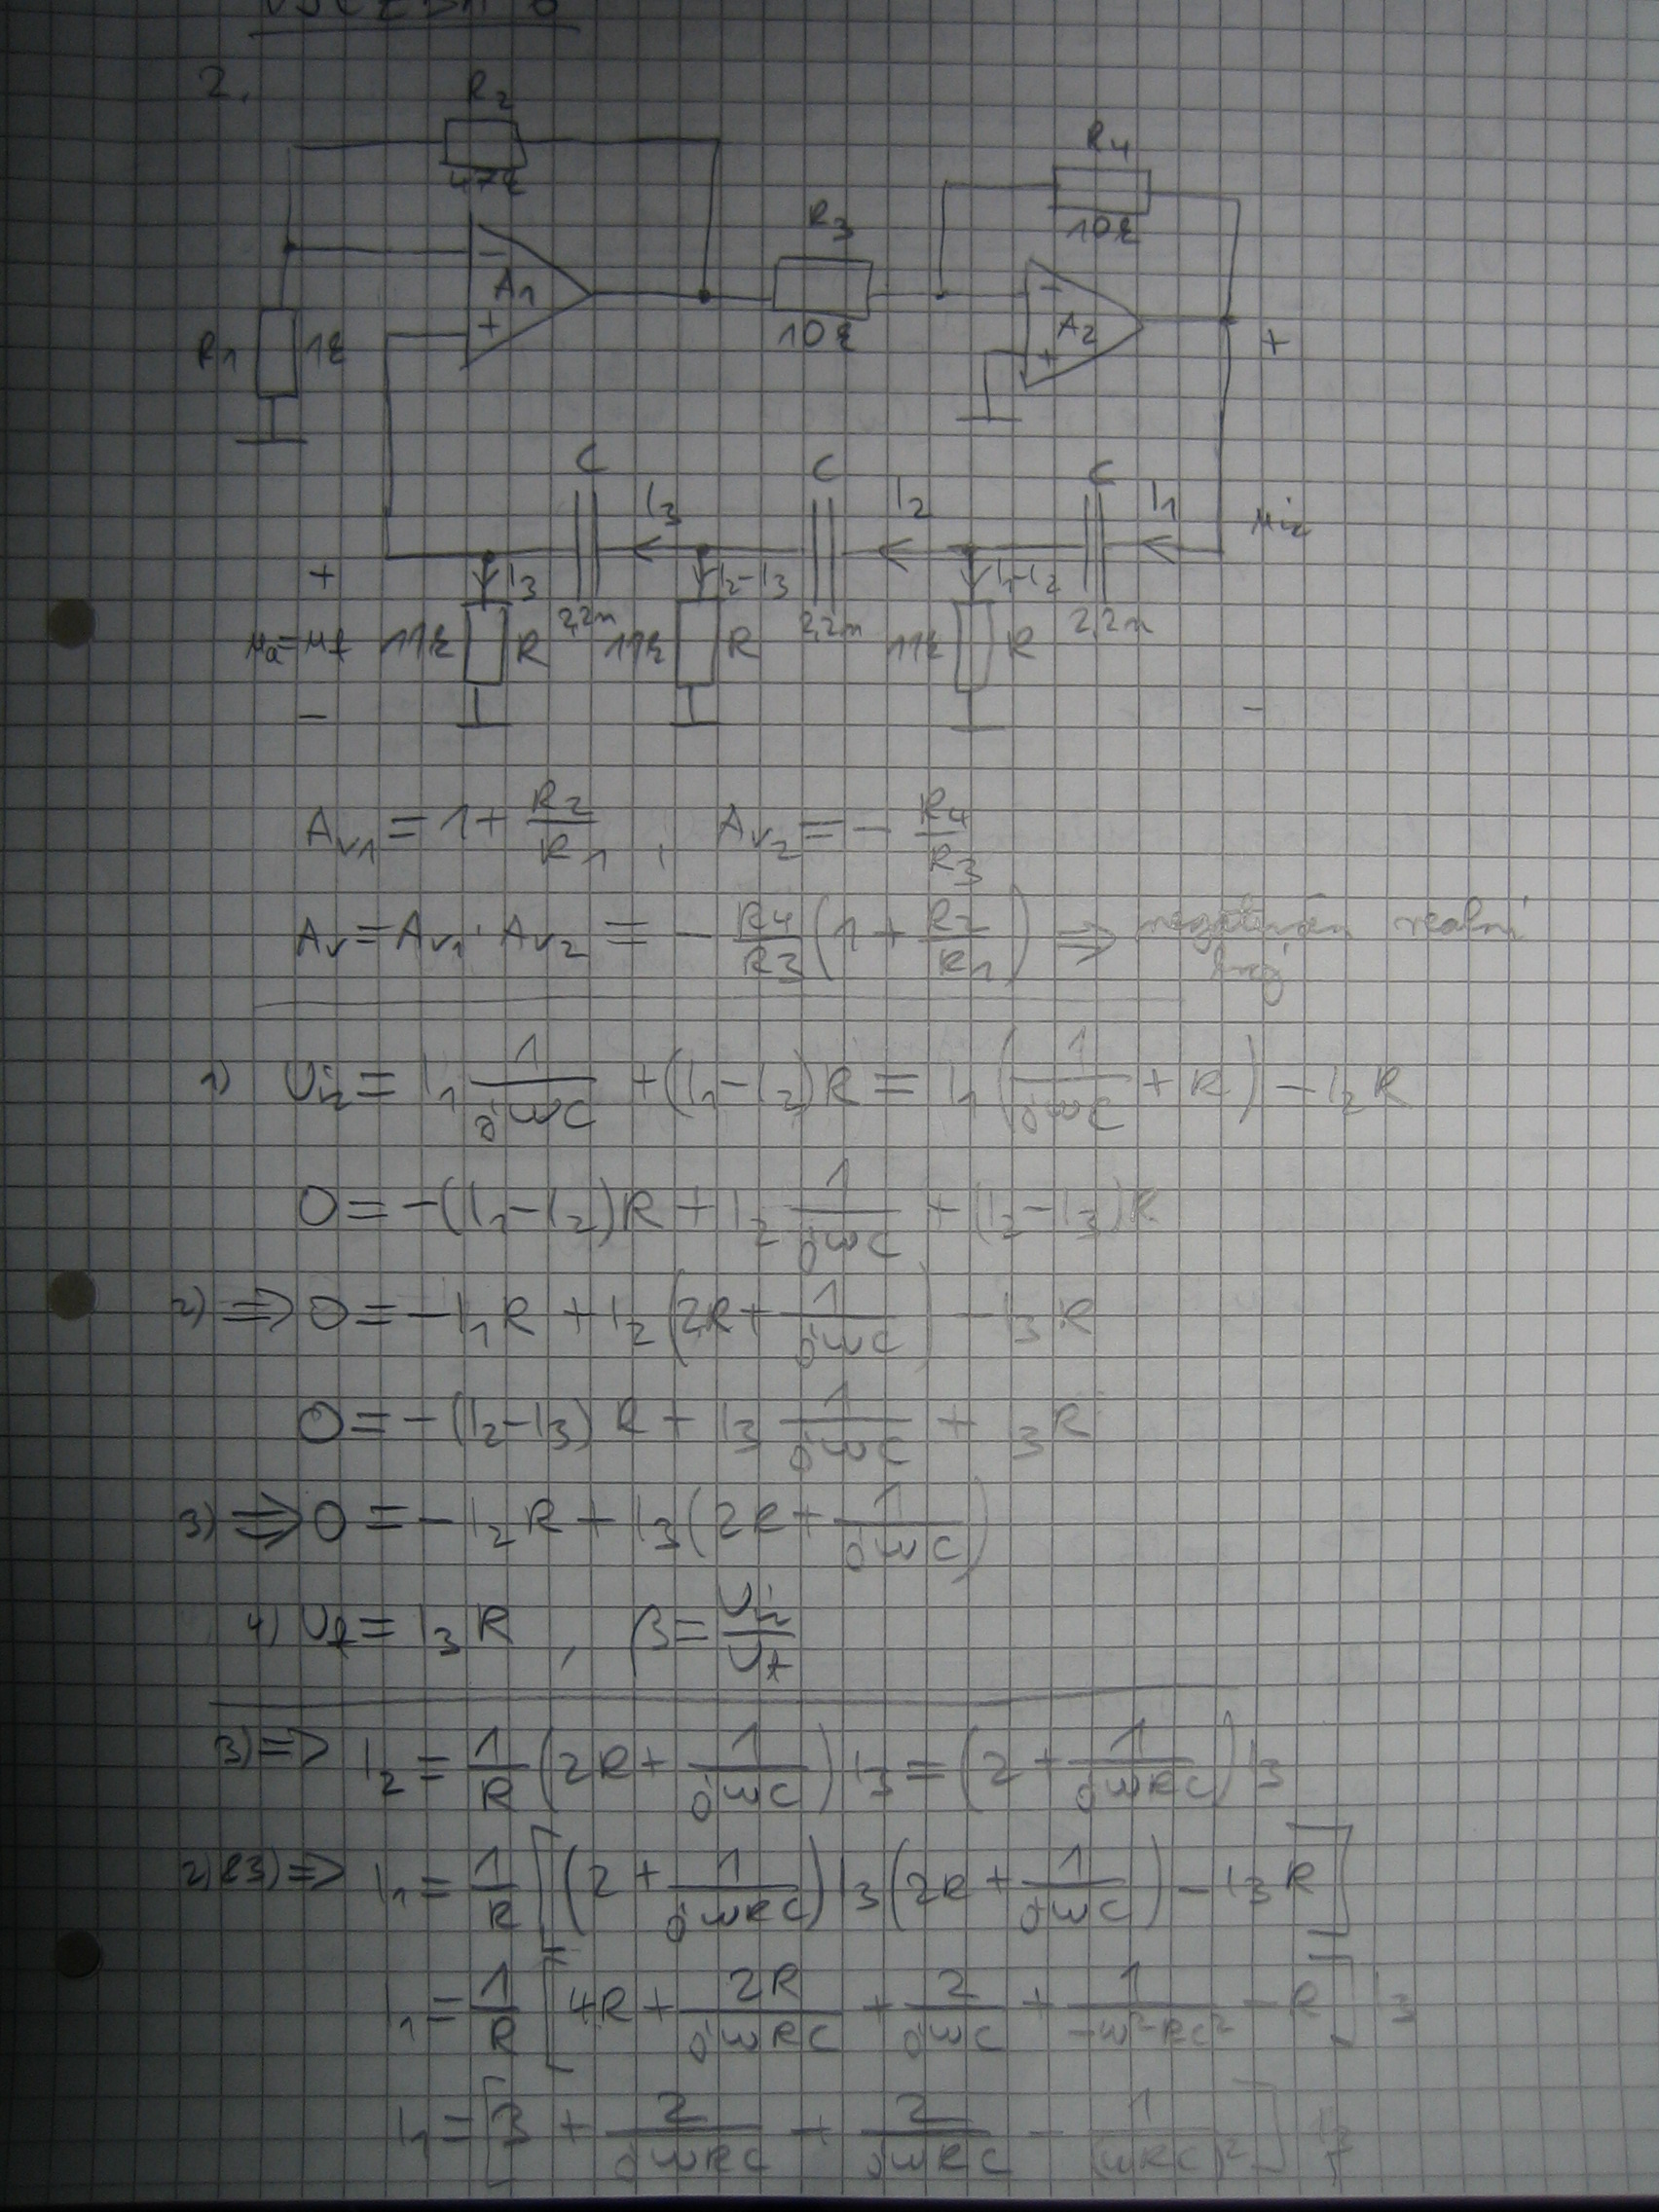 2.
R2
47k
R4
10k
R3
10k
A1
-
+
A2
-
+
R1 1k
+
C C C
I3 I2 I1 uiz
+ I3 I2-I3 I1-I2
2,2n 2,2n 2,2n
ua=uf 11k R 11k R 11k R
- -
Av1 = 1 + R2/R1 , Av2 = - R4/R3
Av = Av1 · Av2 = - R4/R3 (1 + R2/R1) ⇒ negativan realni
broj
1) Uiz = I1 1/jωC + (I1-I2)R = I1 (1/jωC + R) - I2R
0 = -(I1-I2)R + I2 1/jωC + (I2-I3)R
2) ⇒ 0 = -I1R + I2 (2R + 1/jωC) - I3R
0 = -(I2-I3)R + I3 1/jωC + I3R
3) ⇒ 0 = -I2R + I3 (2R + 1/jωC)
4) Uf = I3R , β = Uiz/Uf
3) ⇒ I2 = 1/R (2R + 1/jωC) I3 = (2 + 1/jωRC) I3
2) & 3) ⇒ I1 = 1/R [(2 + 1/jωRC) I3 (2R + 1/jωC) - I3R]
I1 = 1/R [4R + 2R/jωRC + 2/jωC + 1/-ω²RC² - R] I3
I1 = [3 + 2/jωRC + 2/jωRC - 1/(ωRC)²] I3